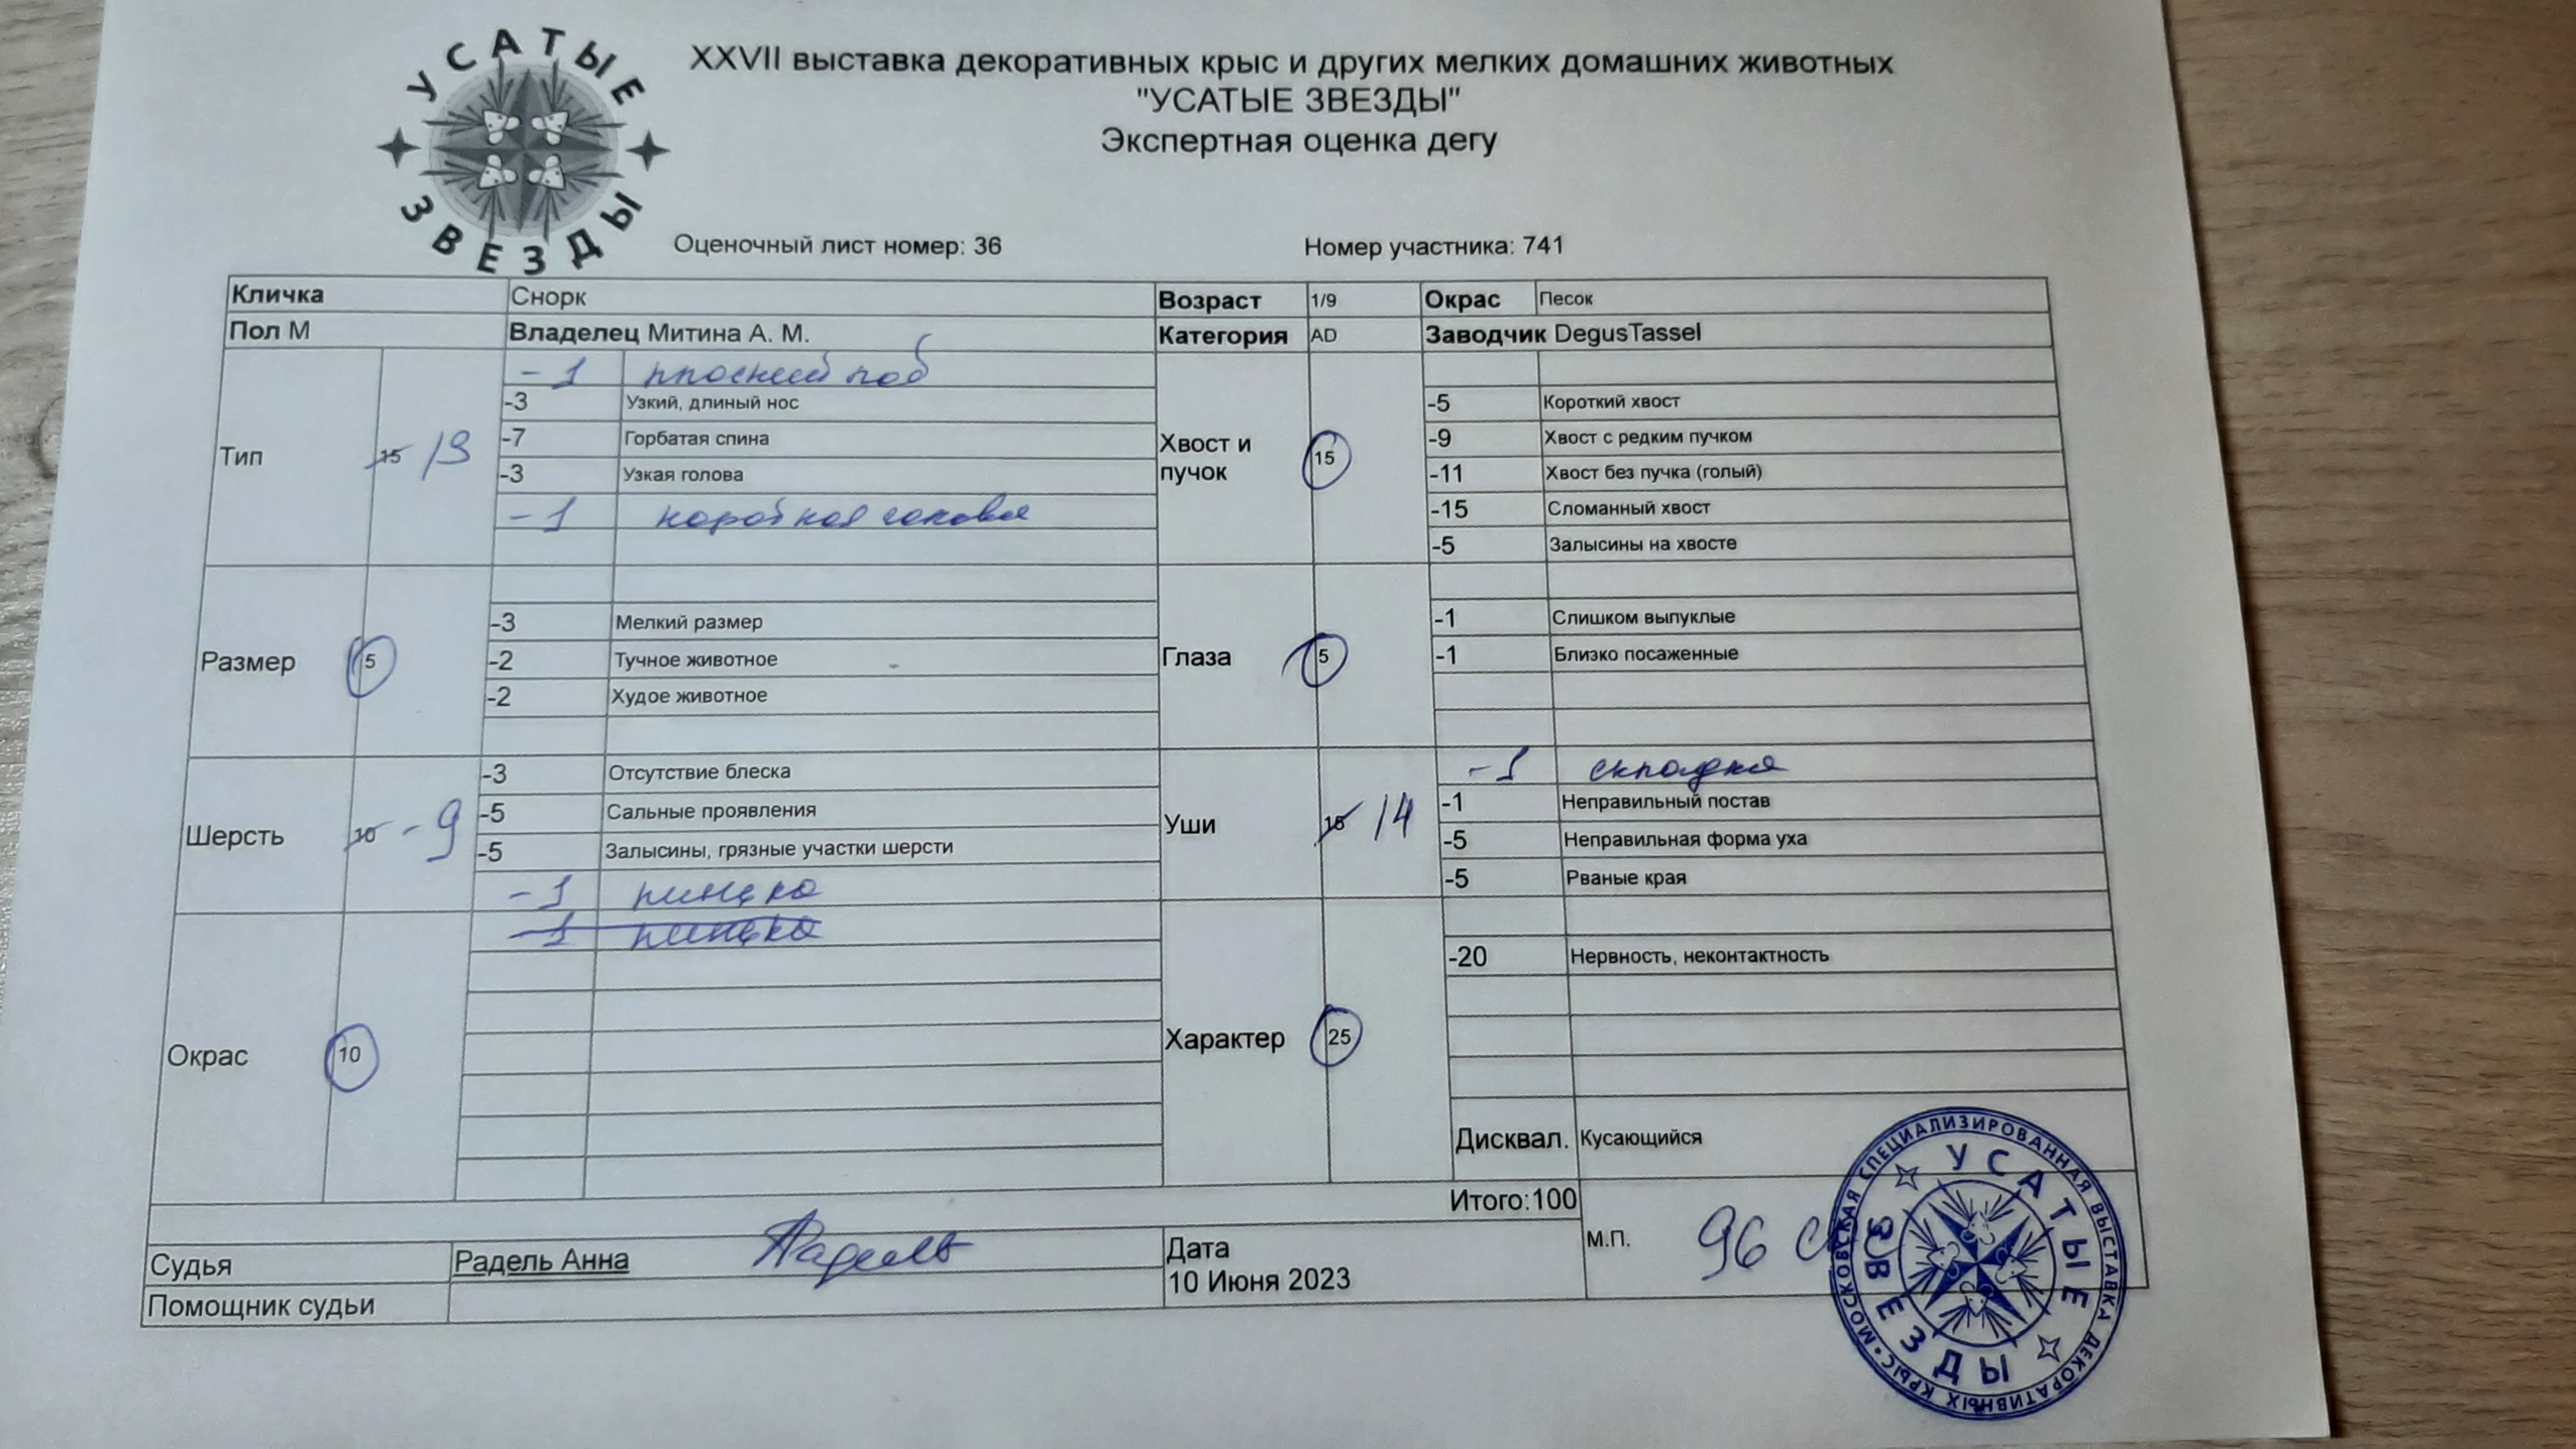 УСАТЫЕ
ЗВЕЗДЫ
XXVII выставка декоративных крыс и других мелких домашних животных
"УСАТЫЕ ЗВЕЗДЫ"
Экспертная оценка дегу
Оценочный лист номер: 36 Номер участника: 741
Кличка Снорк Возраст 1/9 Окрас Песок
Пол М Владелец Митина А. М. Категория AD Заводчик DegusTassel
Тип 15 13
-1 плоский лоб
-3 Узкий, длиный нос
-7 Горбатая спина
-3 Узкая голова
-1 короткая голова
Хвост и пучок 15
-5 Короткий хвост
-9 Хвост с редким пучком
-11 Хвост без пучка (голый)
-15 Сломанный хвост
-5 Залысины на хвосте
Размер 5
-3 Мелкий размер
-2 Тучное животное
-2 Худое животное
Глаза 5
-1 Слишком выпуклые
-1 Близко посаженные
Шерсть 10 - 9
-3 Отсутствие блеска
-5 Сальные проявления
-5 Залысины, грязные участки шерсти
-1 линька
Уши 15 14
-1 складка
-1 Неправильный постав
-5 Неправильная форма уха
-5 Рваные края
Окрас 10
-1 линька
Характер 25
-20 Нервность, неконтактность
Дисквал. Кусающийся
Итого:100
Судья Радель Анна Радель
Помощник судьи
Дата
10 Июня 2023
М.П. 96
МОСКОВСКАЯ СПЕЦИАЛИЗИРОВАННАЯ ВЫСТАВКА ДЕКОРАТИВНЫХ КРЫС
УСАТЫЕ
ЗВЕЗДЫ